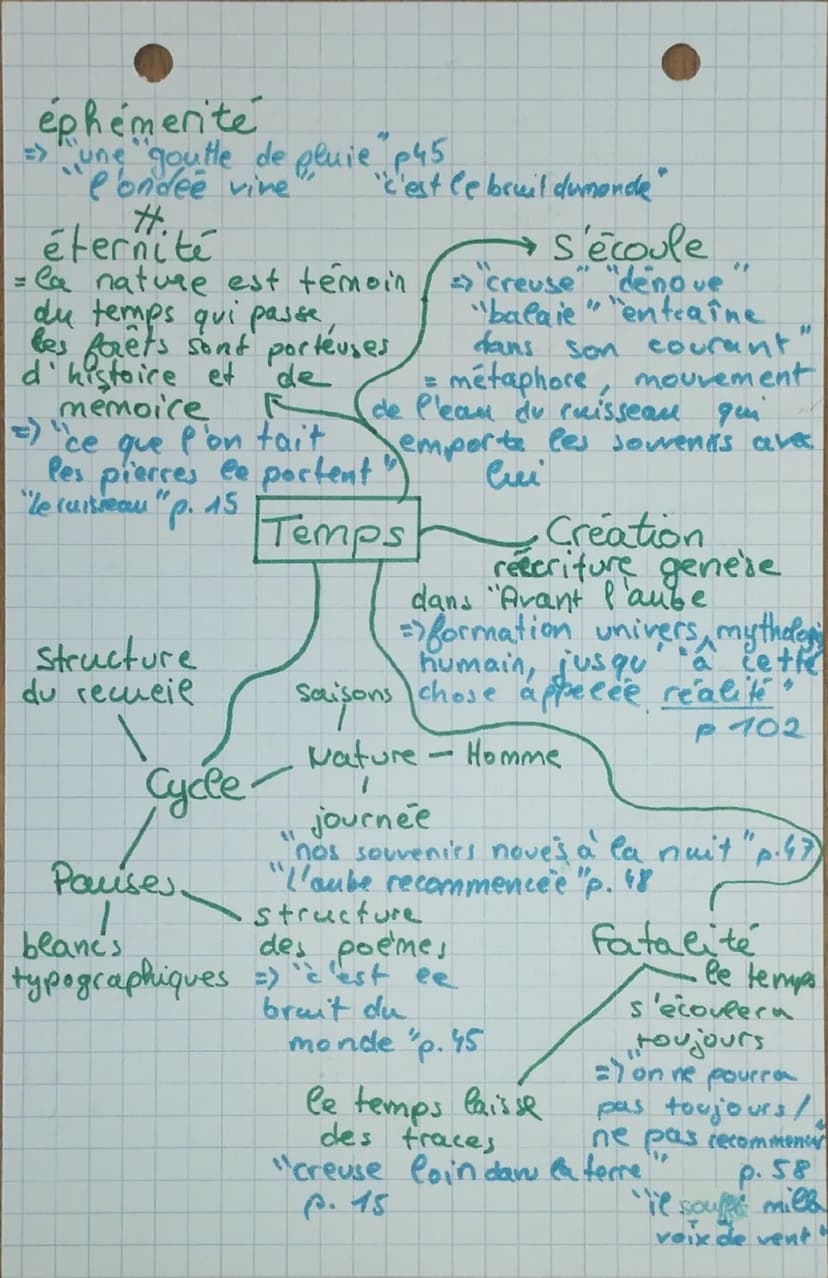 éphémerité
=> "une "goutte de pluie" p45
"l'ondée vive" "c'est le bruit du monde"
#
éternité
= la nature est témoin
du temps qui passe,
les forêts sont porteuses
d'histoire et de
mémoire
=> "ce que l'on tait
les pierres le portent"
"le ruisseau" p. 15
s'écoule
=> "creuse" "dénoue"
"balaie" "entraîne
dans son courant"
= métaphore, mouvement
de l'eau du ruisseau qui
emporte les souvenirs avec
lui
Temps
Création
réécriture genèse
dans "Avant l'aube
=> formation univers, mythologie
humain, jusqu' "à cette
chose appelée réalité"
p 102
structure
du recueil
Cycle
saisons
Nature – Homme
journée
"nos souvenirs noués à la nuit" p.47
"L'aube recommencée" p. 48
Pauses
blancs
typographiques
structure
des poèmes
=> "c'est le
bruit du
monde" p.45
Fatalité
le temps
s'écoulera
toujours
=> "on ne pourra
pas toujours /
ne pas recommencer"
p. 58
"il souffle mille
voix de vent"
le temps laisse
des traces
"creuse loin dans la terre"
p. 15